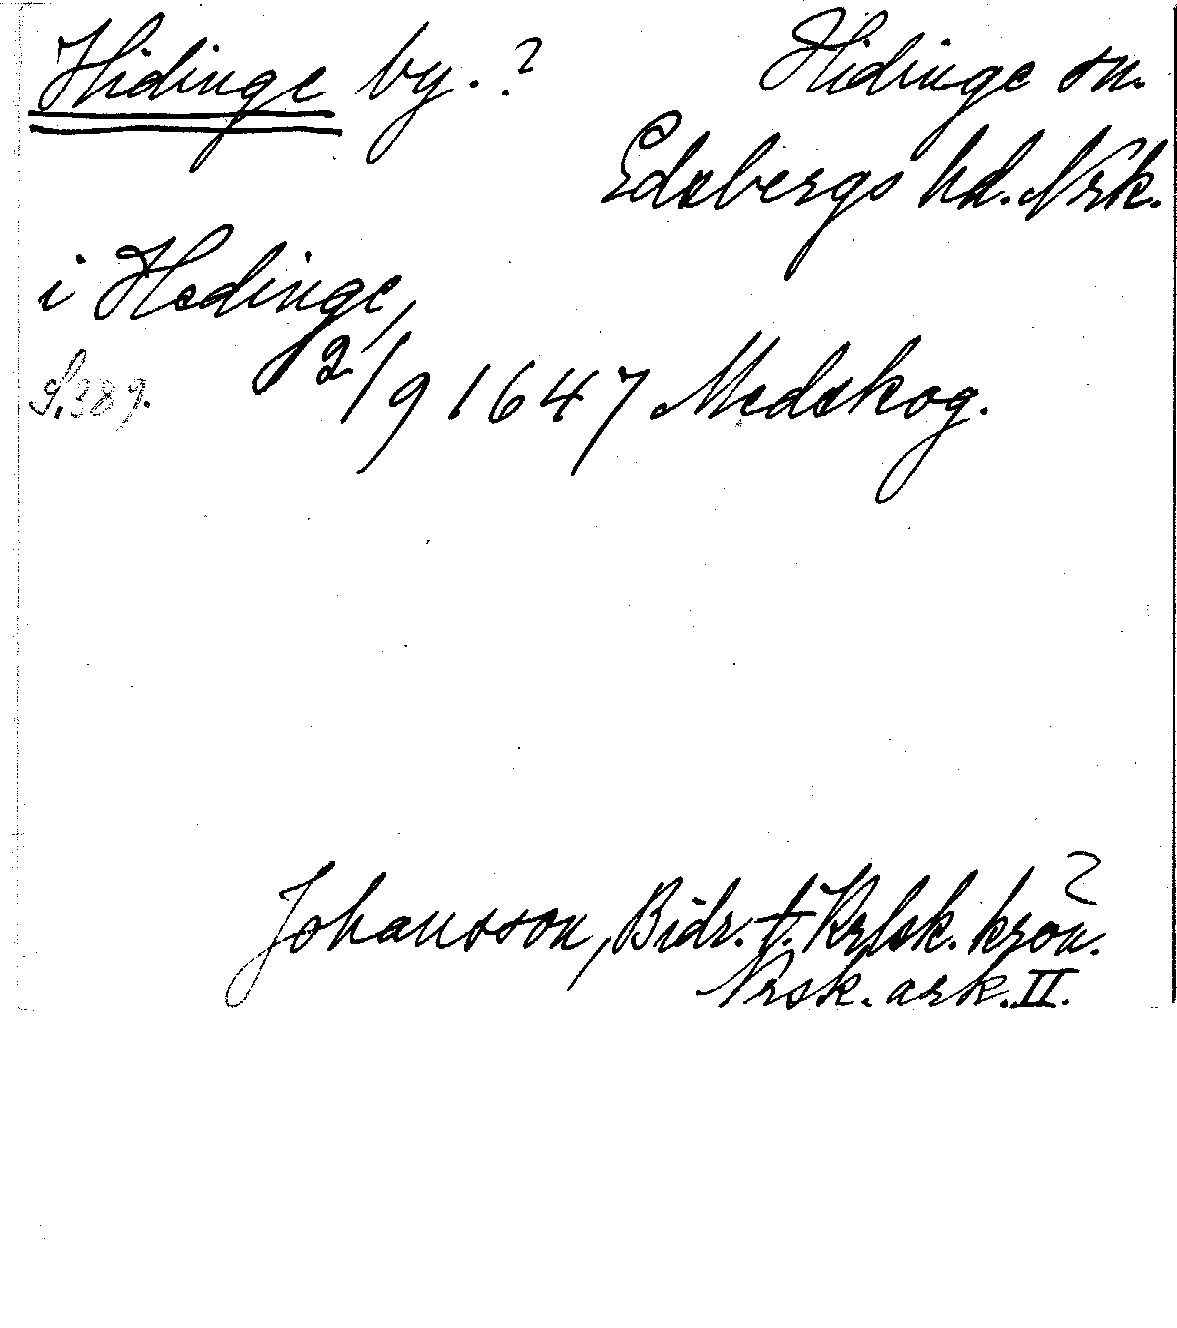 Hidinge by. ? Hidinge sn.
Edsbergs hd. Nrk.
i Hedinge,
S. 389. 2/9 1647 Medskog.
Johansson, Bidr. t. Krlsk. krön.
Nrsk. ark. II.